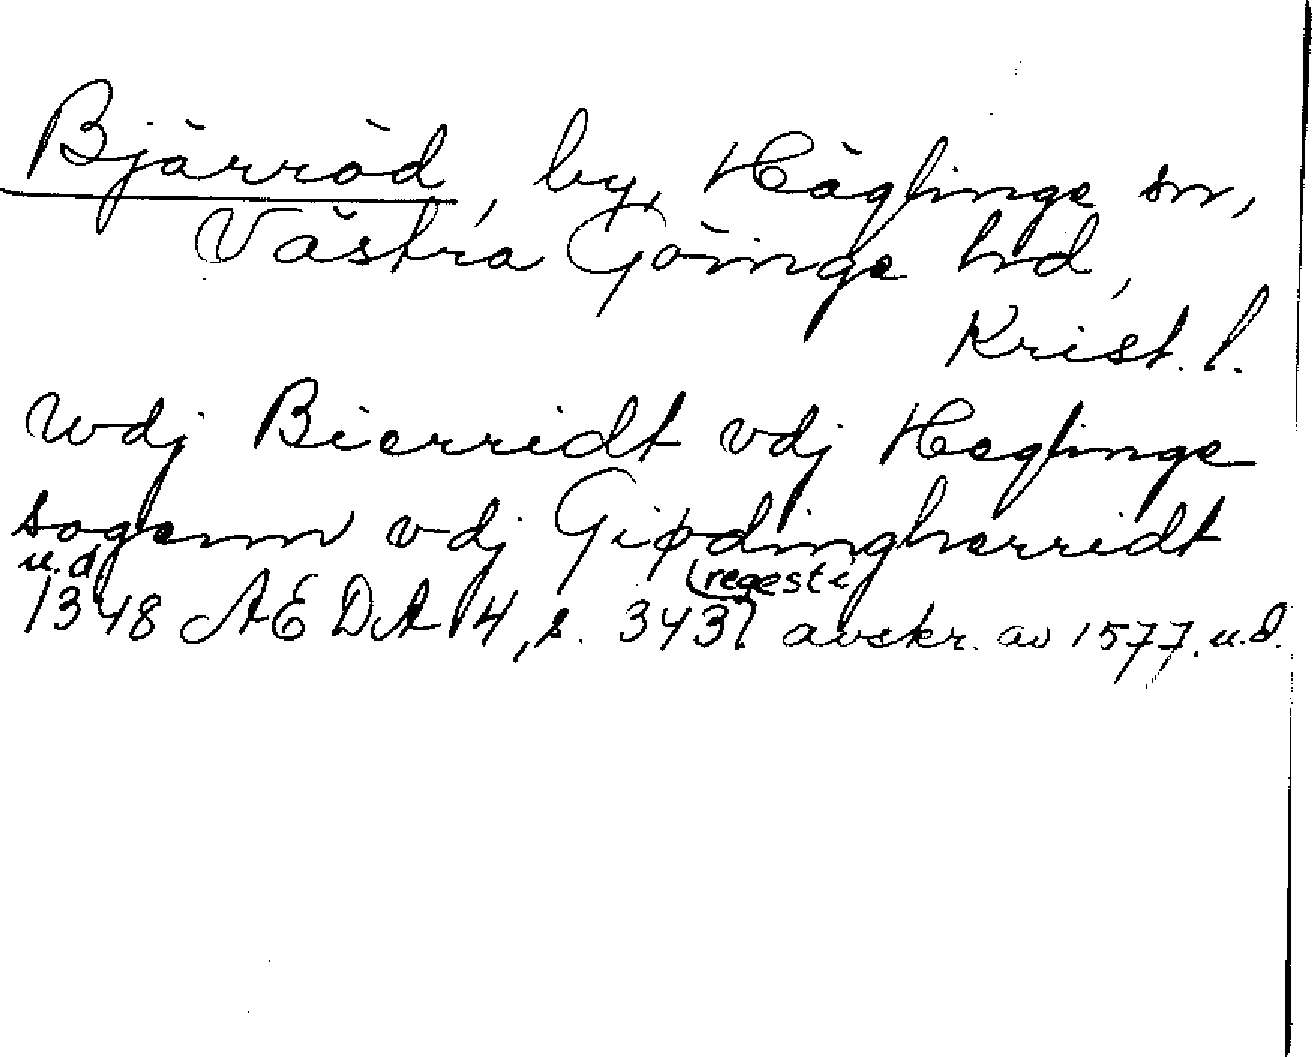 Bjärröd, by, Häglinge sn,
Västra Göinge hd,
Krist. l.
wdj Bierridt vdj Heglinge
sogenn vdj Giødingherridt
u.d. (regest i
1348 AEDA 4, s. 343) avskr. av 1577. u.d.